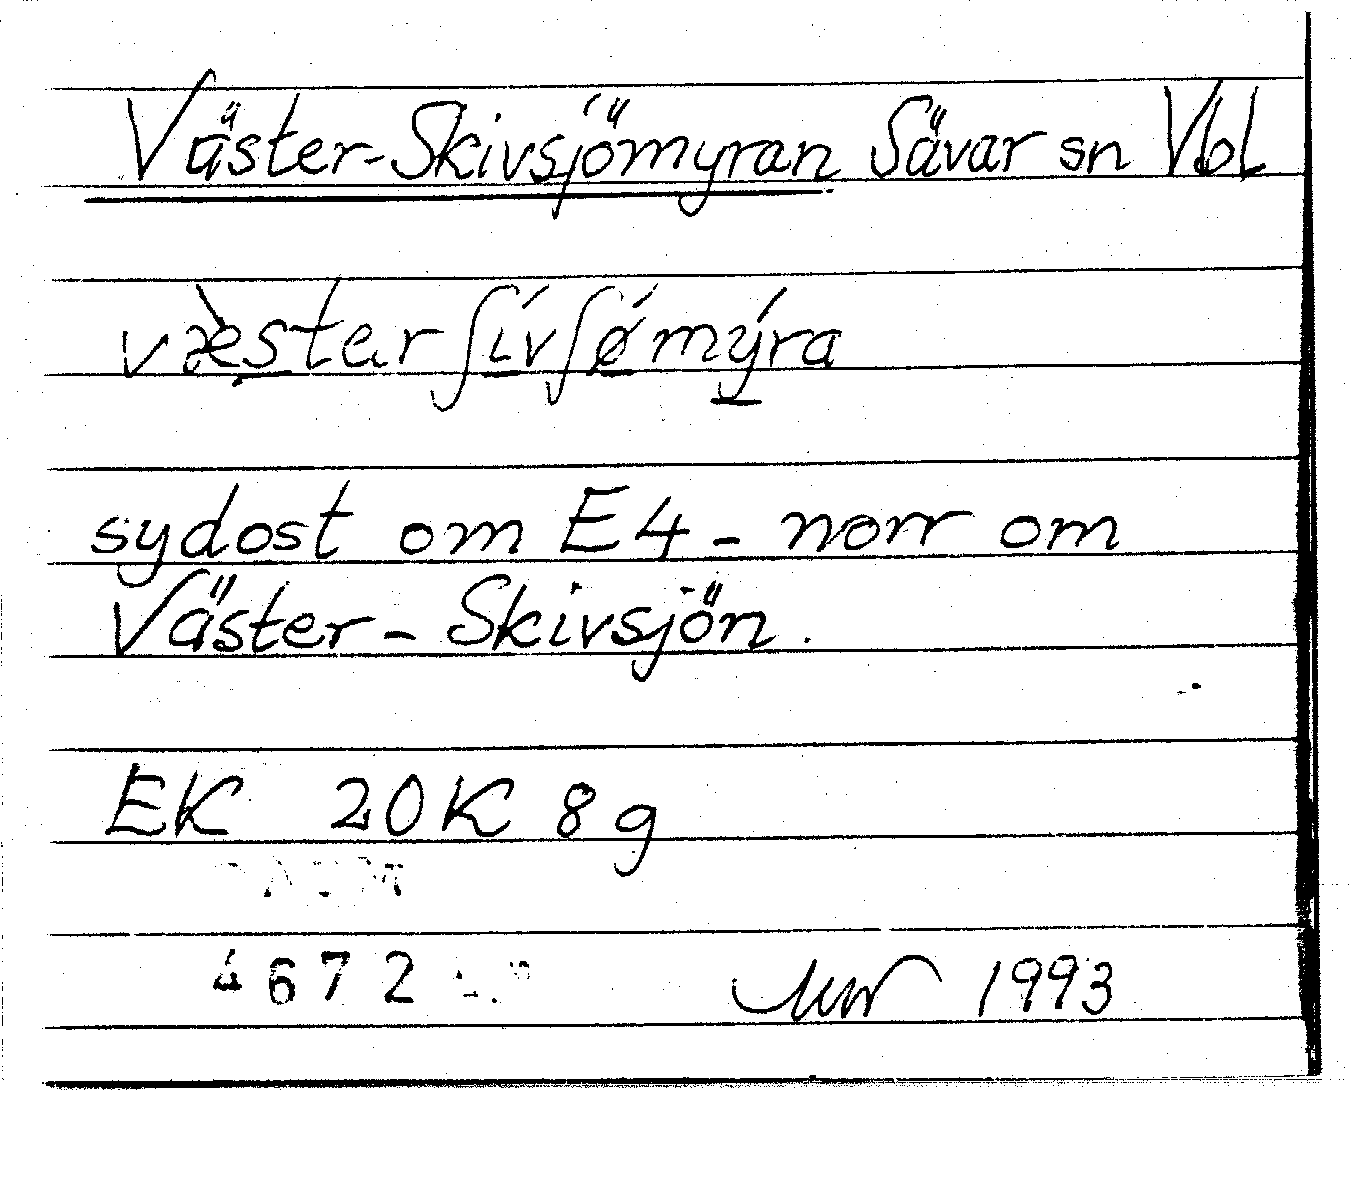 Väster-Skivsjömyran Sävar sn Vbl
væ̀sterʃívʃǿmýra
sydost om E4 - norr om
Väster - Skivsjön.
EK 20K 8g
DAUM
4672
1993